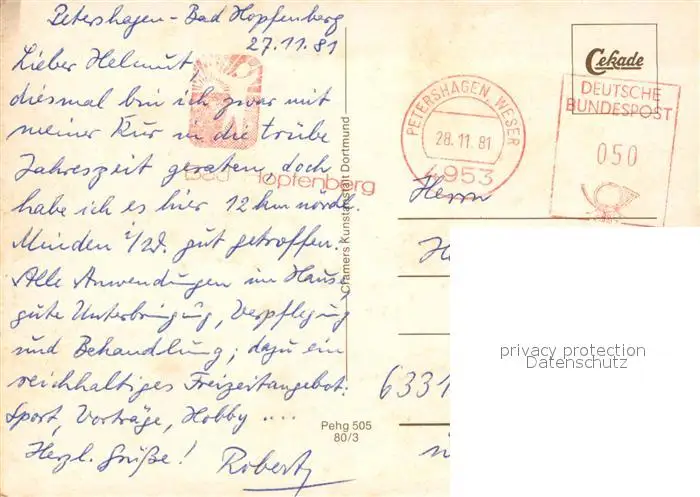 Petershagen-Bad Hopfenberg
27.11.81
Lieber Helmut,
diesmal bin ich zwar mit
meiner Kur in die trübe
Jahreszeit geraten, doch
habe ich es hier 12 km nördl.
Minden i/W. gut getroffen.
Alle Anwendungen im Hause,
gute Unterbringung, Verpflegung
und Behandlung; dazu ein
reichhaltiges Freizeitangebot:
Sport, Vorträge, Hobby ....
Herzl. Grüße!
Robert
Bad Hopfenberg
Cramers Kunstanstalt Dortmund
Pehg 505
80/3
PETERSHAGEN, WESER
28.11.81
4953
Cekade
DEUTSCHE
BUNDESPOST
050
Herrn
H
6331
privacy protection
Datenschutz